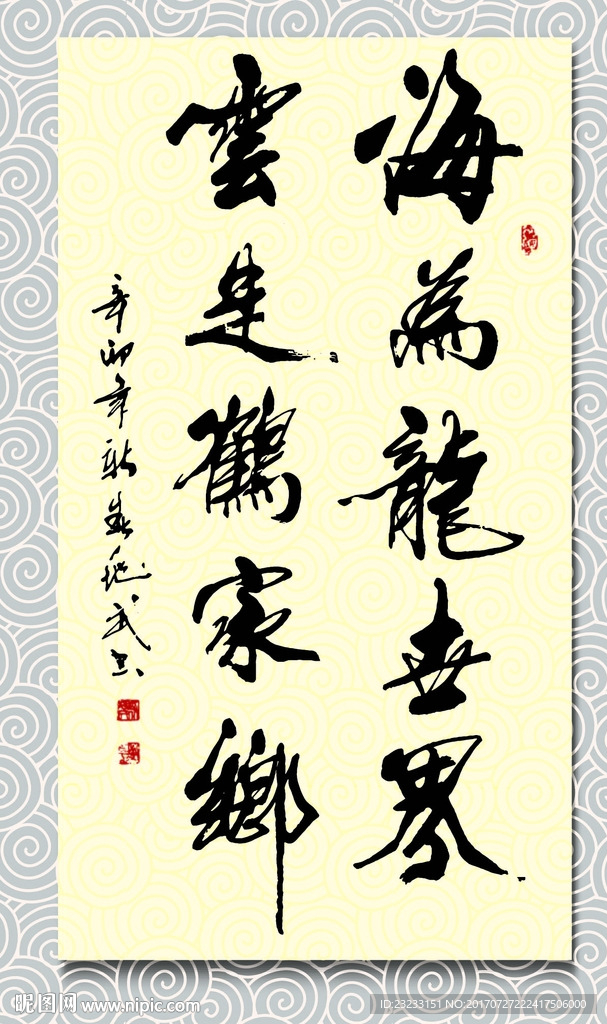 海為龍世界
雲是鶴家鄉
辛卯年新春
昵图网 www.nipic.com
ID:23233151 NO:20170727222417506000